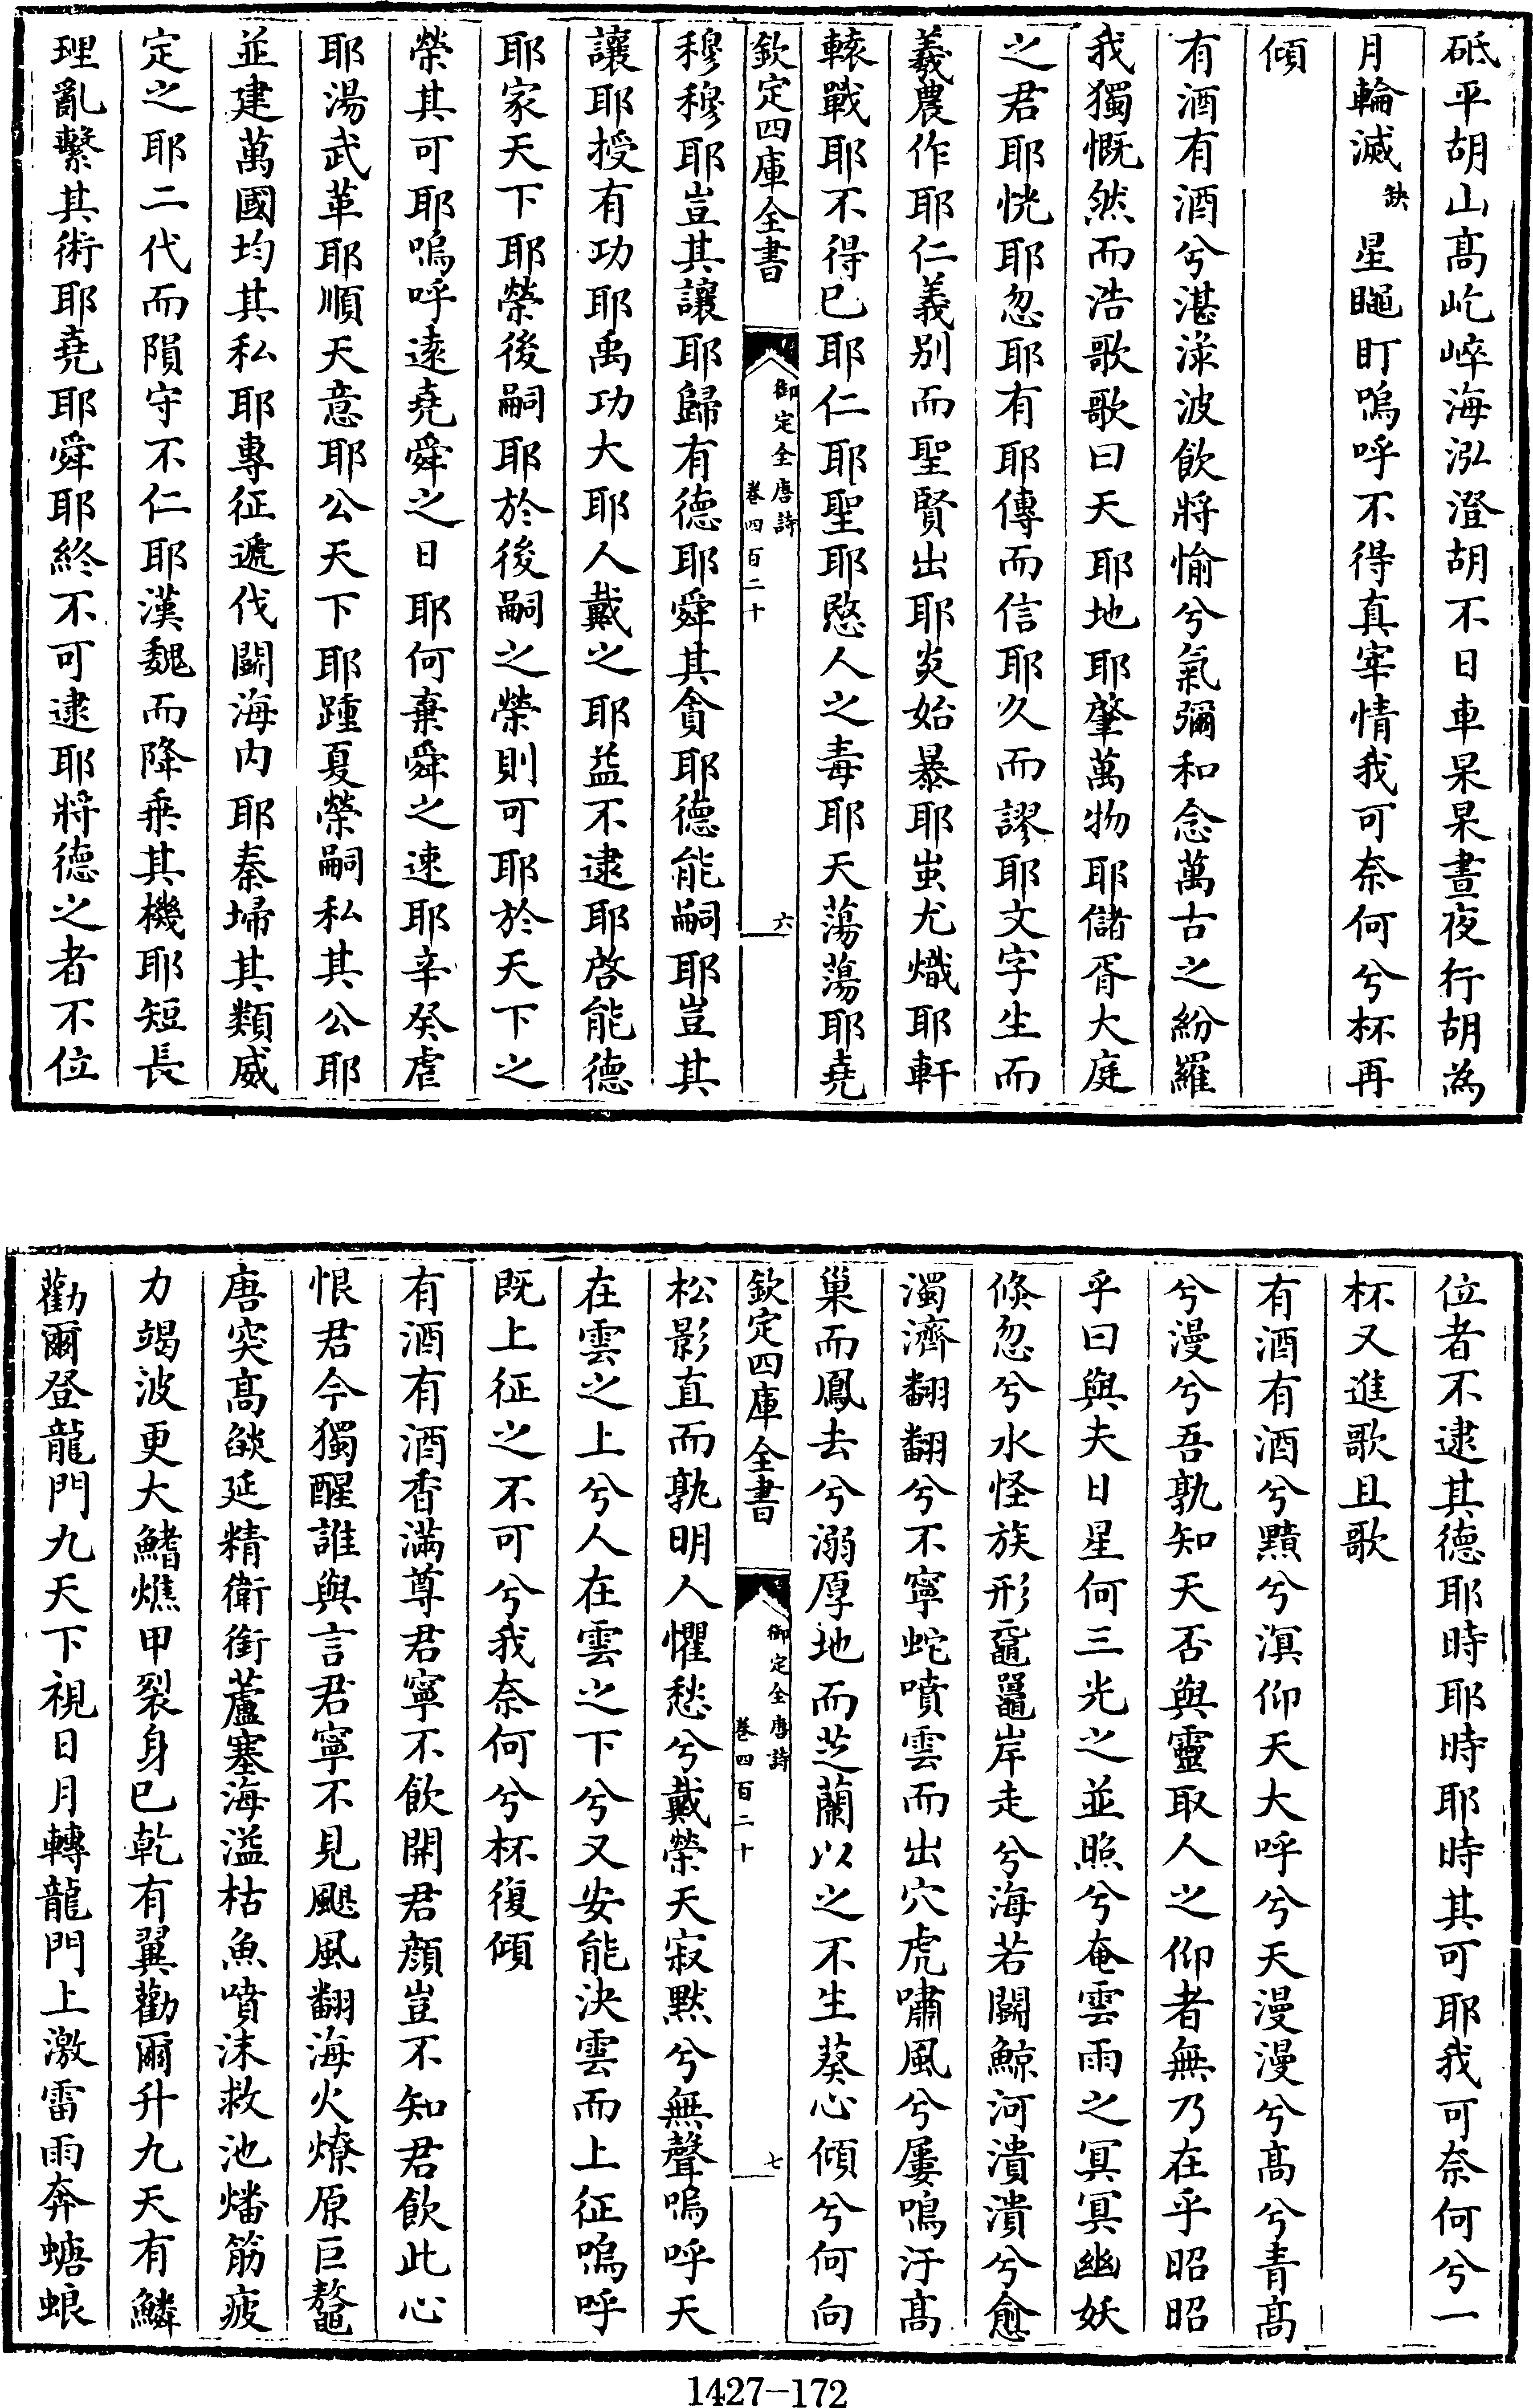 砥平胡山高屹崪海泓澄胡不日車杲杲晝夜行胡為
月輪滅缺星瞇盯嗚呼不得真宰情我可奈何兮杯再
傾
有酒有酒兮湛淥波飲將愉兮氣彌和念萬古之紛羅
我獨慨然而浩歌歌曰天耶地耶肇萬物耶儲胥大庭
之君耶恍耶忽耶有耶傳而信耶久而謬耶文字生而
羲農作耶仁義别而聖賢出耶炎始暴耶蚩尤熾耶軒
轅戰耶不得已耶仁耶聖耶愍人之毒耶天蕩蕩耶堯
欽定四庫全書
御定全唐詩
卷四百二十
六
穆穆耶豈其讓耶歸有德耶舜其貪耶德能嗣耶豈其
讓耶授有功耶禹功大耶人戴之耶益不逮耶啓能德
耶家天下耶榮後嗣耶於後嗣之榮則可耶於天下之
榮其可耶嗚呼遠堯舜之日耶何棄舜之速耶辛癸虐
耶湯武革耶順天意耶公天下耶踵夏榮嗣私其公耶
並建萬國均其私耶專征遞伐鬭海内耶秦埽其類威
定之耶二代而隕守不仁耶漢魏而降乗其機耶短長
理亂繫其術耶堯耶舜耶終不可逮耶將德之者不位
位者不逮其德耶時耶時耶時其可耶我可奈何兮一
杯又進歌且歌
有酒有酒兮黫兮溟仰天大呼兮天漫漫兮高兮青高
兮漫兮吾孰知天否與靈取人之仰者無乃在乎昭昭
乎曰與夫日星何三光之並照兮奄雲雨之冥冥幽妖
倐忽兮水怪族形黿鼉岸走兮海若鬭鯨河潰潰兮愈
濁濟翻翻兮不寧蛇噴雲而出穴虎嘯風兮屢鳴汙高
巢而鳳去兮溺厚地而芝蘭以之不生葵心傾兮何向
欽定四庫全書
御定全唐詩
卷四百二十
七
松影直而孰明人懼愁兮戴榮天寂默兮無聲嗚呼天
在雲之上兮人在雲之下兮又安能決雲而上征嗚呼
既上征之不可兮我奈何兮杯復傾
有酒有酒香滿尊君寧不飲開君顔豈不知君飲此心
恨君今獨醒誰與言君寧不見颶風翻海火燎原巨鼇
唐突高燄延精衛銜蘆塞海溢枯魚噴沫救池燔筋疲
力竭波更大鰭燋甲裂身已乾有翼勸爾升九天有鱗
勸爾登龍門九天下視日月轉龍門上激雷雨奔螗蜋
1427-172